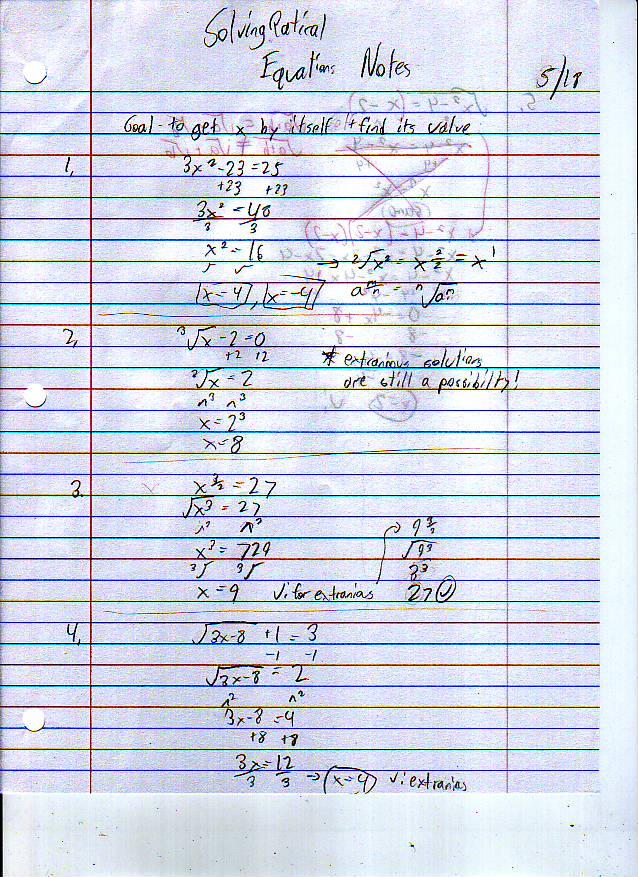 Solving Ratical
Equations Notes
5/18
Goal - to get x by itself + find its value
1. 3x² - 23 = 25
+23 +23
3x² = 48
3 3
x² = 16 → ²√x² = x^2/2 = x¹
√ √
x = 4, x = -4 a^m/n = ⁿ√a^m
2. ³√x - 2 = 0
+2 +2
* extranimus solutions
³√x = 2
are still a possibilty!
^3 ^3
x = 2³
x = 8
3. x^3/2 = 27
√x³ = 27
^2 ^2 → 9^3/2
x³ = 729 √9³
³√ ³√ 3³
x = 9 √: for extranias 27 ✓
4. √3x-8 + 1 = 3
-1 -1
√3x-8 = 2
^2 ^2
3x-8 = 4
+8 +8
3x = 12
3 3 → x = 4 √: extranias